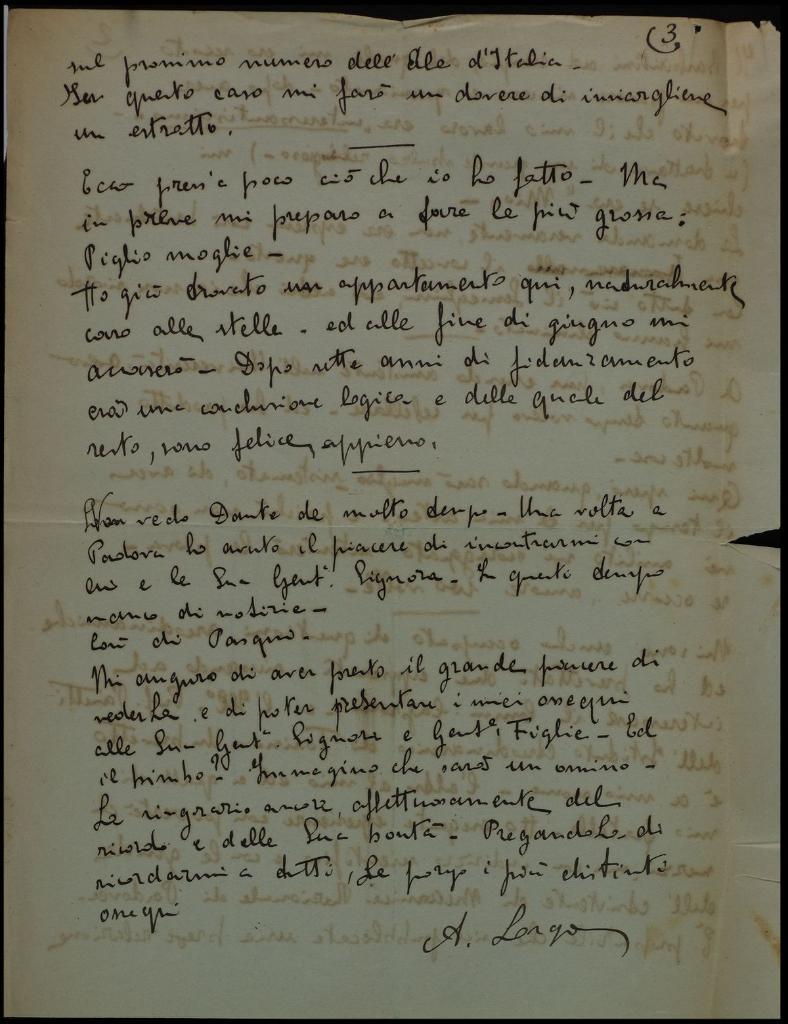 (3)
sul prossimo numero dell'Ala d'Italia -
Per questo caso mi farò un dovere di inviargliene
un estratto.
Ecco press'a poco ciò che io ho fatto - Ma
in breve mi preparo a fare la più grossa:
Piglio moglie -
Ho già trovato un appartamento qui, naturalmente
caro alle stelle - ed alla fine di giugno mi
accaserò - Dopo sette anni di fidanzamento
era una conclusione logica e della quale del
resto, sono felice appieno.
Non vedo Dante da molto tempo - Una volta a
Padova ho avuto il piacere di incontrarmi con
lui e la Sua Gent. Signora - In questi tempo
manco di notizie -
Così di Pasqui -
Mi auguro di aver presto il grande piacere di
vederLa e di poter presentare i miei ossequi
alla Sua Gent.a Signora e Gent.e Figlie - Ed
il bimbo? - Immagino che sarà un omino -
La ringrazio ancora, affettuosamente del
ricordo e della Sua bontà - PregandoLa di
ricordarmi a tutti, Le porgo i più distinti
ossequi
A.